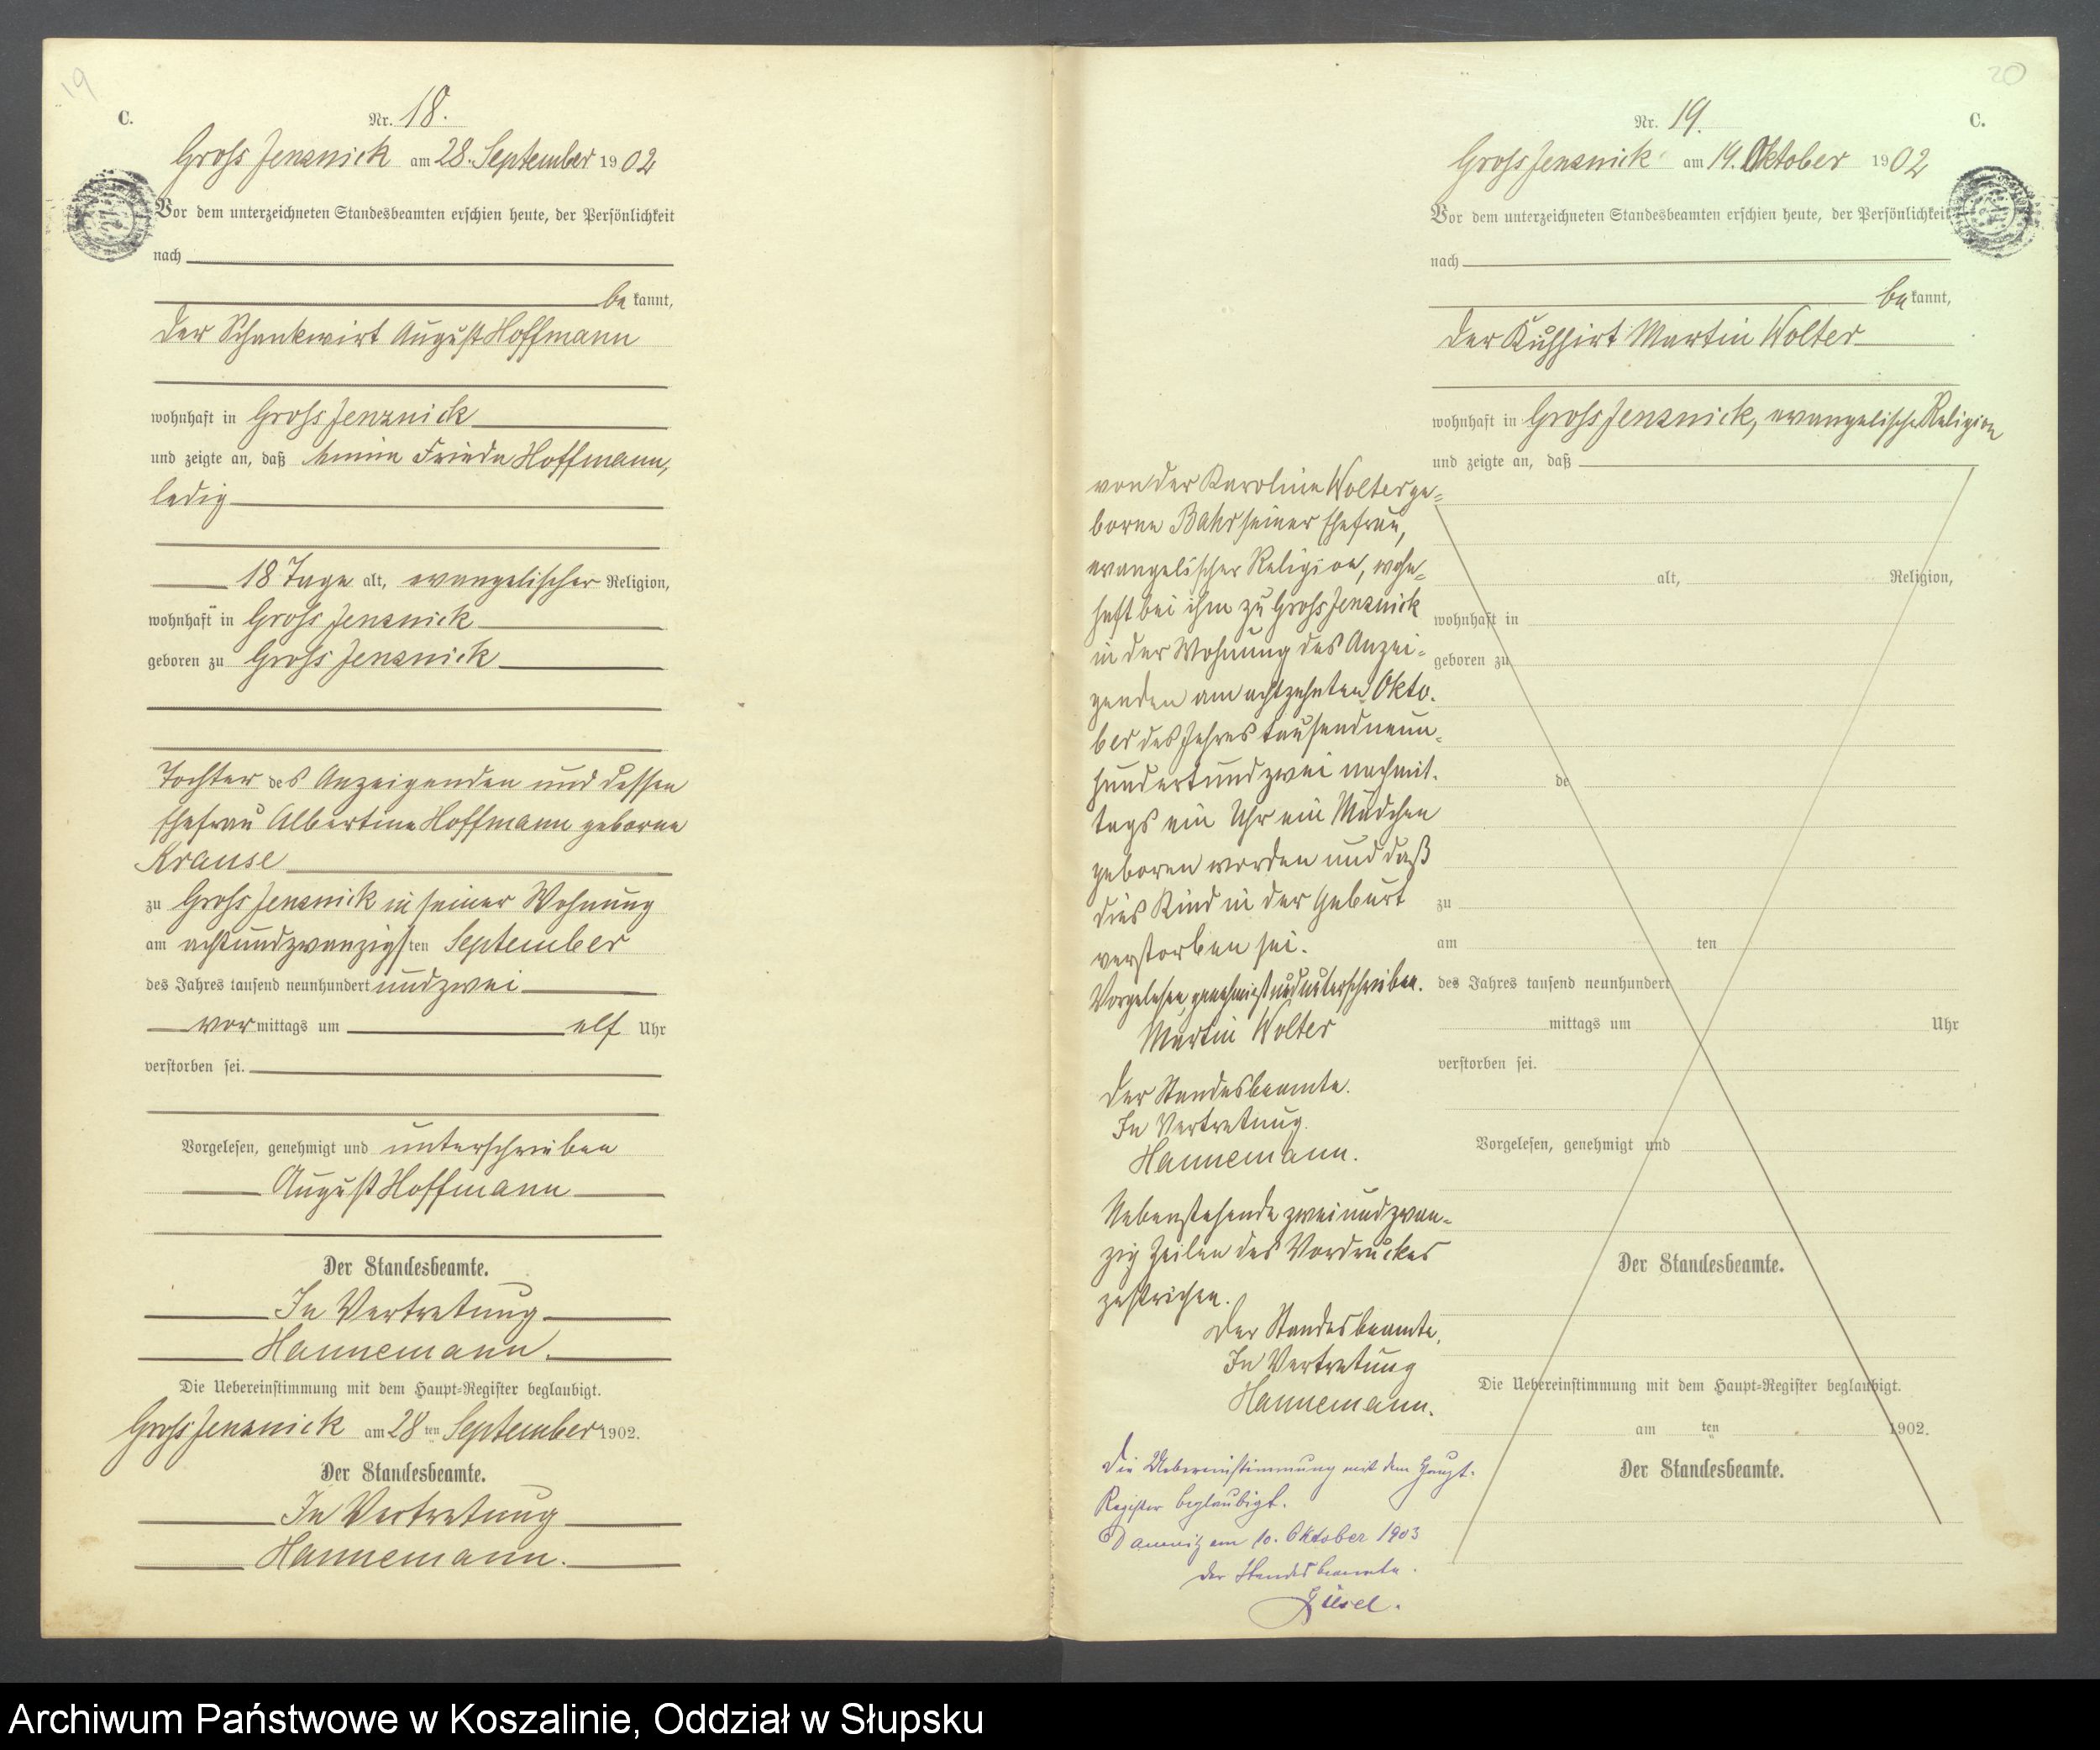 19
C.
Nr. 18.
Gross Jenznick am 28. September 1902
Vor dem unterzeichneten Standesbeamten erschien heute, der Persönlichkeit
nach
bekannt,
der Schankwirt August Hoffmann
wohnhaft in Gross Jenznick
und zeigte an, daß Frieda Hoffmann,
ledig
18 Tage alt, evangelischer Religion,
wohnhaft in Gross Jenznick
geboren zu Gross Jenznick
Tochter des Anzeigenden und dessen
Ehefrau Albertine Hoffmann geborne
Krause
zu Gross Jenznick in seiner Wohnung
am achtundzwanzigsten September
des Jahres tausend neunhundert und zwei
vormittags um elf Uhr
verstorben sei.
Vorgelesen, genehmigt und unterschrieben
August Hoffmann
Der Standesbeamte.
In Vertretung
Hannemann.
Die Uebereinstimmung mit dem Haupt-Register beglaubigt.
Gross Jenznick am 28 ten September 1902.
Der Standesbeamte.
In Vertretung
Hannemann.
20
C.
Nr. 19.
Gross Jenznick am 19. Oktober 1902
Vor dem unterzeichneten Standesbeamten erschien heute, der Persönlichkeit
nach
bekannt,
der Kuhhirt Martin Wolter
wohnhaft in Gross Jenznick, evangelische Religion
und zeigte an, daß
von der Karoline Wolter ge=
borne Bahr seiner Ehefrau,
evangelischer Religion, wohn=
haft bei ihm zu Gross Jenznick
in der Wohnung des Anzei=
genden am achtzehnten Okto.
ber des Jahres tausend neun=
hundert und zwei nachmit.
tags ein Uhr ein Mädchen
geboren worden und daß
dies Kind in der Geburt
verstorben sei.
Vorgelesen, genehmigt und unterschrieben.
Martin Wolter
Der Standesbeamte.
In Vertretung.
Hannemann.
Nebenstehende zweiundzwan=
zig Zeilen des Vordruckes
gestrichen.
Der Standesbeamte,
In Vertretung
Hannemann.
Die Uebereinstimmung mit dem Haupt-
Register beglaubigt.
Damnitz am 10. Oktober 1903
Der Standesbeamte.
alt, Religion,
wohnhaft in
geboren zu
de
zu
am ten
des Jahres tausend neunhundert
mittags um Uhr
verstorben sei.
Vorgelesen, genehmigt und
Der Standesbeamte.
Die Uebereinstimmung mit dem Haupt-Register beglaubigt.
am ten 1902.
Der Standesbeamte.
Archiwum Państwowe w Koszalinie, Oddział w Słupsku